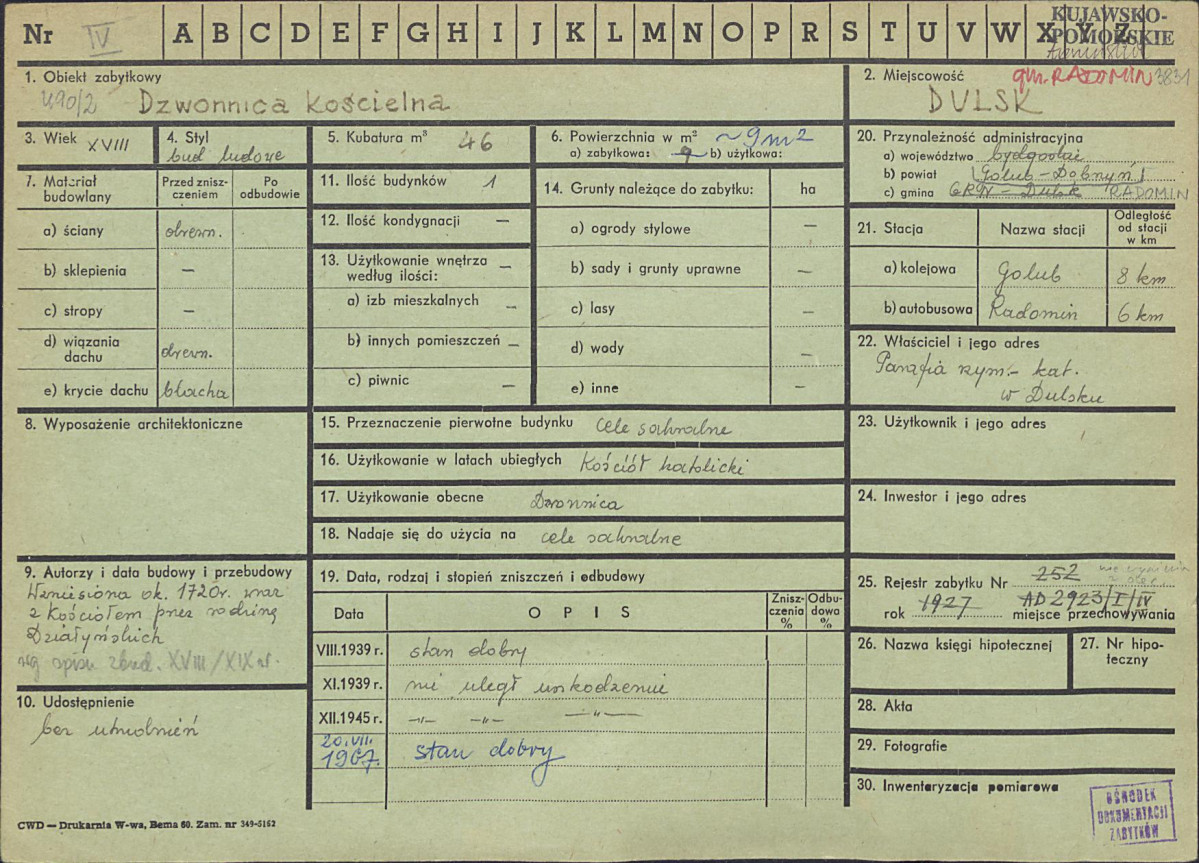 Nr IV A B C D E F G H I J K L M N O P R S T U V W X Y Z
KUJAWSKO-
POMORSKIE
1. Obiekt zabytkowy
490/2 Dzwonnica kościelna
2. Miejscowość gm. RADOMIN 3831
DULSK
3. Wiek XVIII
4. Styl
bud ludowe
5. Kubatura m³ 46
6. Powierzchnia w m² ~9m2
a) zabytkowa: 9 b) użytkowa:
20. Przynależność administracyjna
a) województwo bydgoskie
b) powiat Golub-Dobrzyń
c) gmina GRN - Dulsk RADOMIN
7. Materiał
budowlany
Przed znisz-
czeniem
Po
odbudowie
a) ściany drewn.
b) sklepienia —
c) stropy —
d) wiązania
dachu drewn.
e) krycie dachu blacha
11. Ilość budynków 1
12. Ilość kondygnacji —
13. Użytkowanie wnętrza
według ilości: —
a) izb mieszkalnych —
b) innych pomieszczeń —
c) piwnic —
14. Grunty należące do zabytku: ha
a) ogrody stylowe —
b) sady i grunty uprawne —
c) lasy —
d) wody —
e) inne —
21. Stacja Nazwa stacji
Odległość
od stacji
w km
a) kolejowa Golub 8 km
b) autobusowa Radomin 6 km
22. Właściciel i jego adres
Parafia rzym.-kat.
w Dulsku
8. Wyposażenie architektoniczne
15. Przeznaczenie pierwotne budynku cele sakralne
16. Użytkowanie w latach ubiegłych Kościół katolicki
17. Użytkowanie obecne Dzwonnica
18. Nadaje się do użycia na cele sakralne
23. Użytkownik i jego adres
24. Inwestor i jego adres
9. Autorzy i data budowy i przebudowy
Wzniesiona ok. 1720r. wraz
z Kościołem przez rodzinę
Działyńskich
wg spisu zbud. XVIII/XIX w.
10. Udostępnienie
bez utrudnień
19. Data, rodzaj i stopień zniszczeń i odbudowy
Data OPIS
Znisz-
czenia
%
Odbu-
dowa
%
VIII.1939 r. stan dobry
XI.1939 r. nie uległ uszkodzeniu
XII.1945 r. —„— —„— —„—
20.VII.
1967. stan dobry
25. Rejestr zabytku Nr 252
rok 1927 AD 2923/I/IV miejsce przechowywania
26. Nazwa księgi hipotecznej
27. Nr hipo-
teczny
28. Akta
29. Fotografie
30. Inwentaryzacja pomiarowa
OŚRODEK
DOKUMENTACJI
ZABYTKÓW
CWD — Drukarnia W-wa, Bema 60. Zam. nr 349-5162